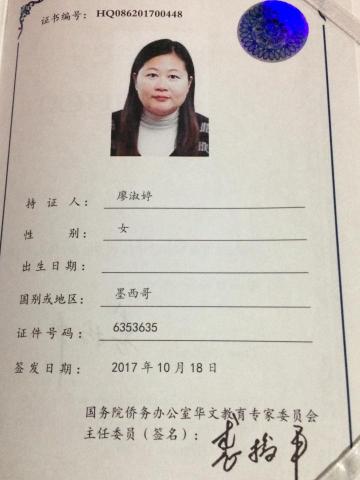 证书编号： HQ086201700448
持 证 人： 廖淑婷
性 别： 女
出生日期：
国别或地区： 墨西哥
证件号码： 6353635
签发日期： 2017 年 10 月 18 日
国务院侨务办公室华文教育专家委员会
主任委员（签名）：